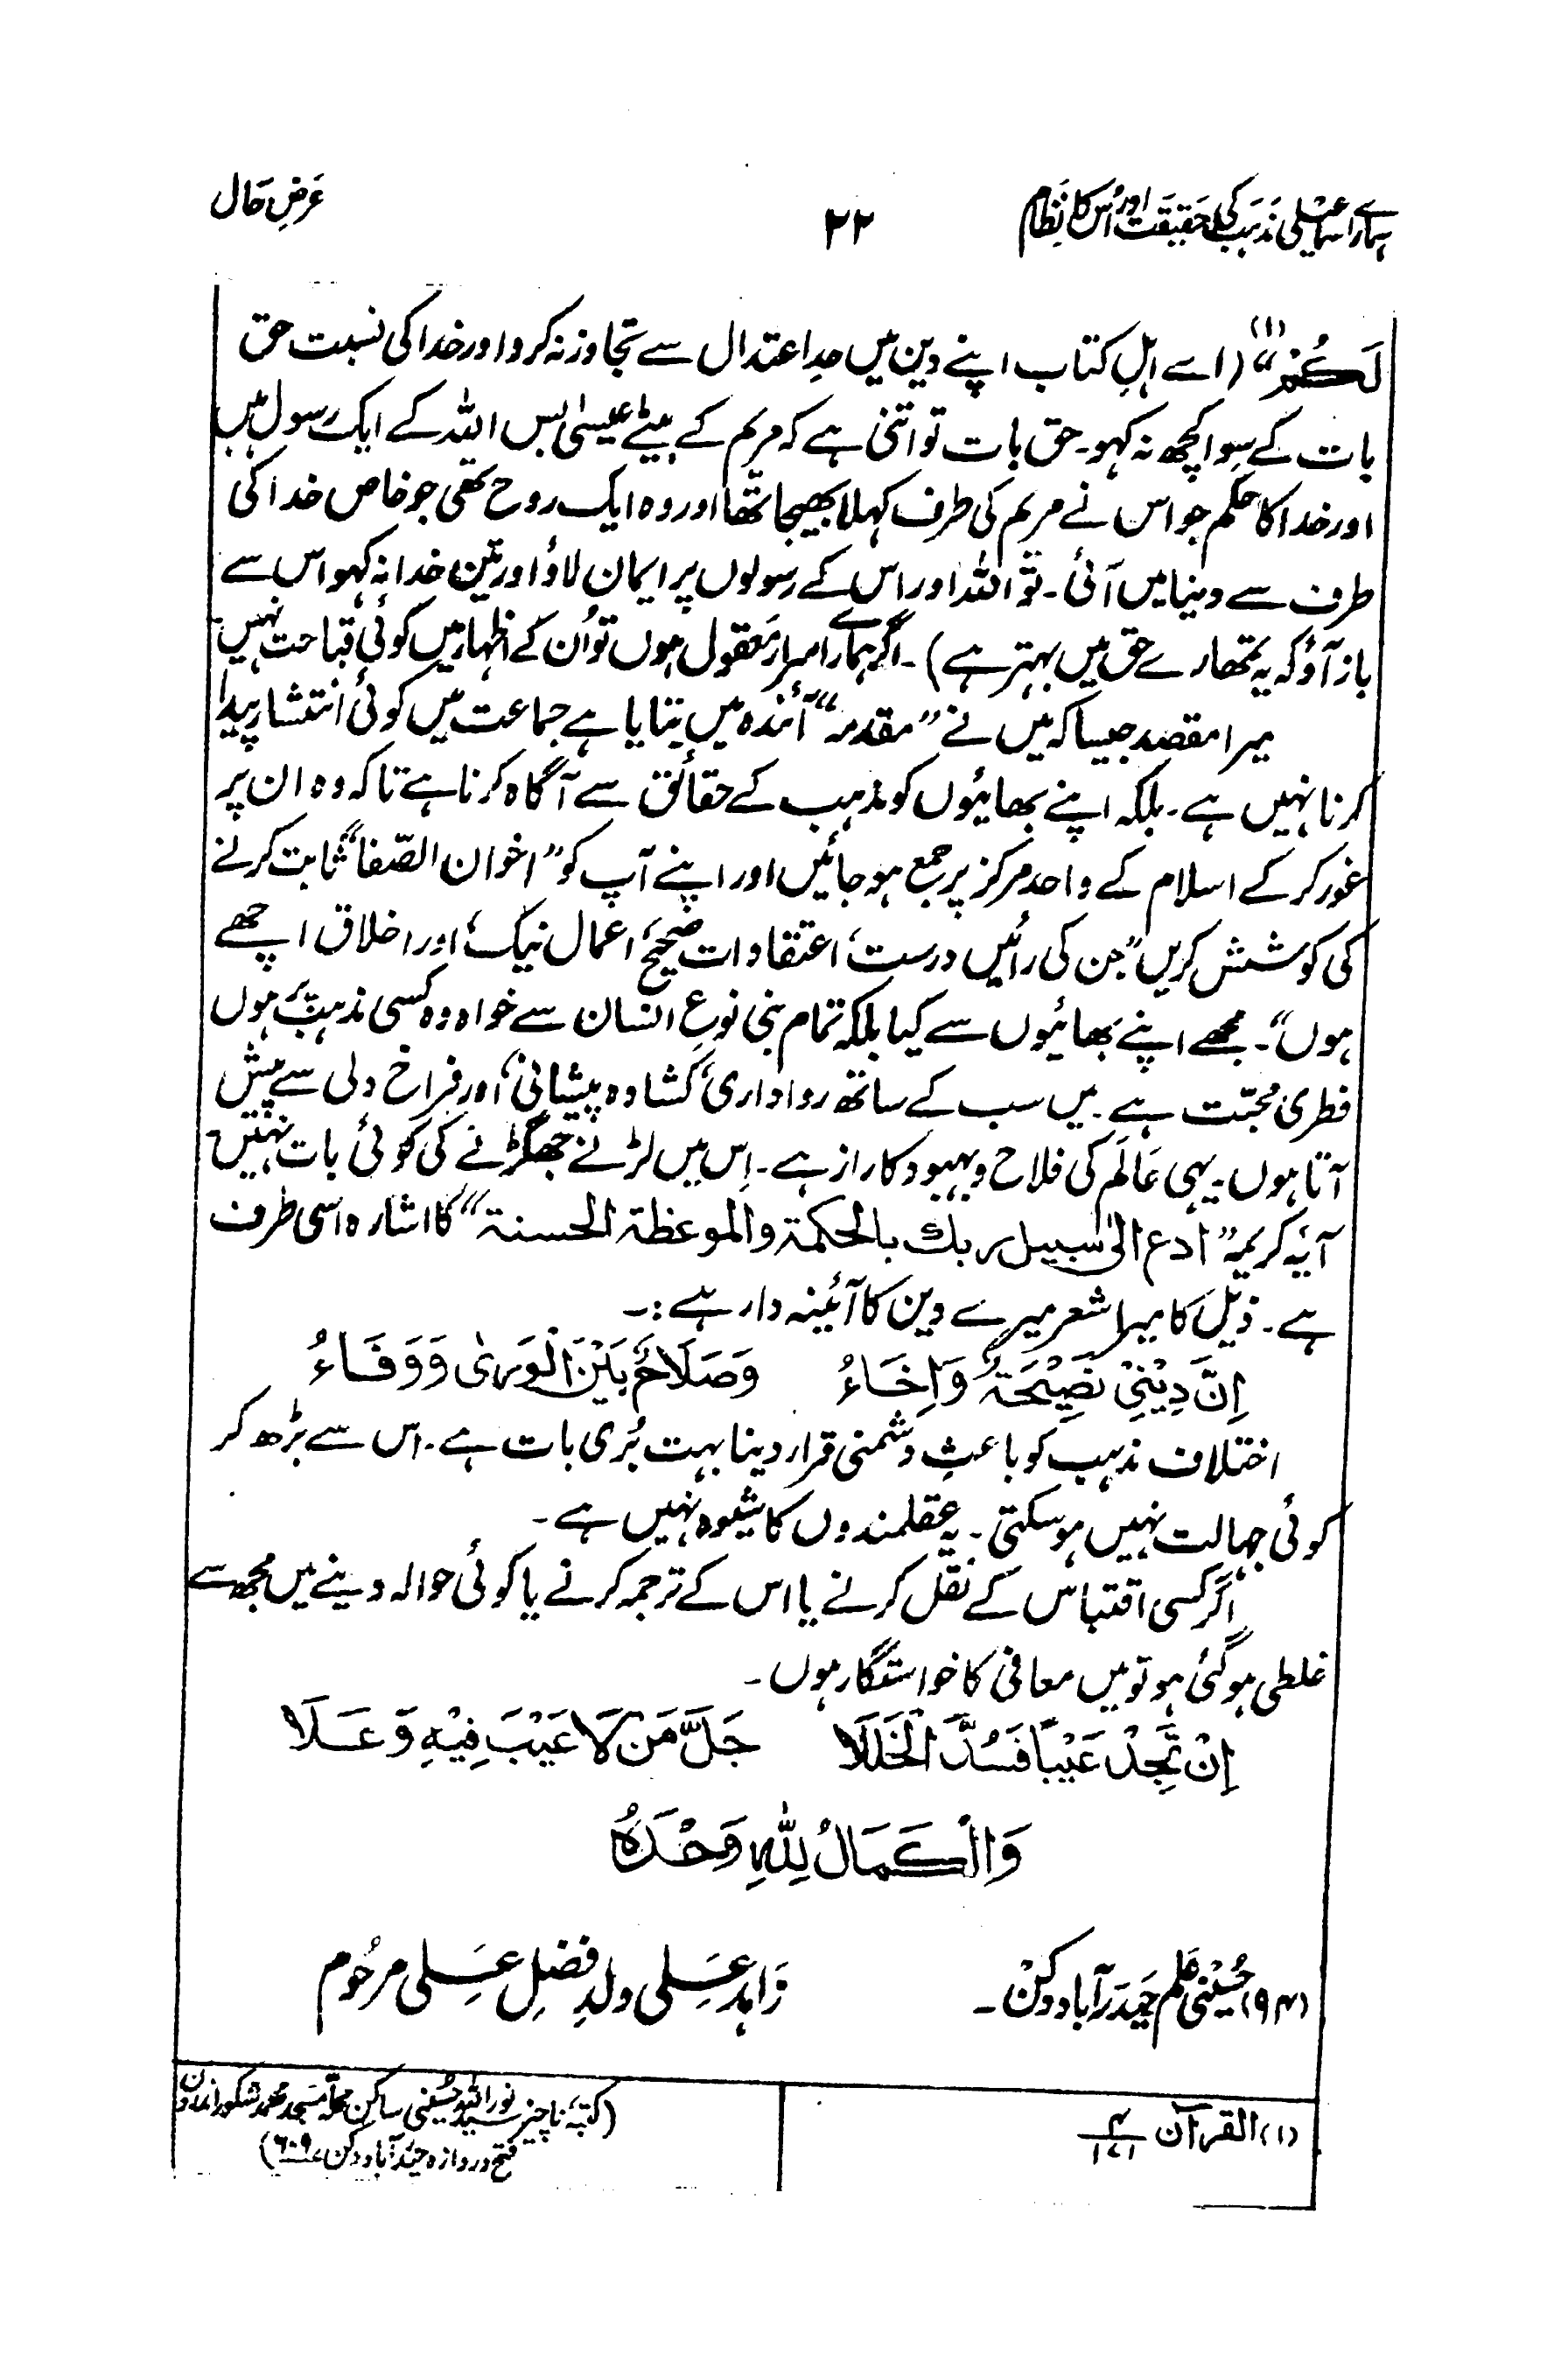 ہمارے اسماعیلی مذہب کی حقیقت اور اُس کا نظام ۲۲ عَرضِ حَال
لَكُمْ“(۱) (اے اہلِ کتاب اپنے دین میں حدِ اعتدال سے تجاوز نہ کرو اور خدا کی نسبت حق
بات کے سوا کچھ نہ کہو۔ حق بات تو اتنی ہے کہ مریم کے بیٹے عیسیٰ بس اللہ کے ایک رسول ہیں
اور خدا کا حکم جو اس نے مریم کی طرف کہلا بھیجا تھا اور وہ ایک روح تھی جو خاص خدا کی
طرف سے دنیا میں آئی۔ تو اللہ اور اس کے رسولوں پر ایمان لاؤ اور تین خدا نہ کہو اس سے
باز آؤ کہ یہ تمھارے حق میں بہتر ہے)۔ اگر ہمارے اسرار معقول ہوں تو اُن کے اظہار میں کوئی قباحت نہیں۔
میرا مقصد جیسا کہ میں نے ”مقدمہ“ آئندہ میں بتایا ہے جماعت میں کوئی انتشار پیدا
کرنا نہیں ہے۔ بلکہ اپنے بھائیوں کو مذہب کے حقائق سے آگاہ کرنا ہے تاکہ وہ ان پر
غور کر کے اسلام کے واحد مرکز پر جمع ہو جائیں اور اپنے آپ کو ”اخوان الصّفا“ ثابت کرنے
کی کوشش کریں ”جن کی رائیں درست، اعتقادات صحیح، اعمال نیک، اور اخلاق اچھے
ہوں“۔ مجھے اپنے بھائیوں سے کیا بلکہ تمام بنی نوعِ انسان سے خواہ وہ کسی مذہب پر ہوں
فطری محبّت ہے۔ میں سب کے ساتھ رواداری، کشادہ پیشانی، اور فراخ دلی سے پیش
آتا ہوں۔ یہی عَالَم کی فلاح و بہبود کا راز ہے۔ اِس میں لڑنے جھگڑنے کی کوئی بات نہیں۔
آیۂ کریمہ ”ادع الیٰ سبیل ربك بالحکمة والموعظة الحسنة“ کا اشارہ اسی طرف
ہے۔ ذیل کا میرا شعر میرے دین کا آئینہ دار ہے:۔
اِنَّ دِیْنِیْ نَصِیْحَةٌ وَاِخَاءُ وَصَلَاحٌ بَیْنَ الْوَرىٰ وَوَفَاءُ
اختلاف مذہب کو باعثِ دشمنی قرار دینا بہت بُری بات ہے۔ اس سے بڑھ کر
کوئی جہالت نہیں ہو سکتی۔ یہ عقلمندوں کا شیوہ نہیں ہے۔
اگر کسی اقتباس کے نقل کرنے یا اس کے ترجمہ کرنے یا کوئی حوالہ دینے میں مجھ سے
غلطی ہو گئی ہو تو میں معافی کا خواستگار ہوں۔
اِنْ تَجِدْ عَیْبًا فَسُدَّ الْخَلَلَا جَلَّ مَنْ لَا عَیْبَ فِیْهِ وَعَلَا
وَالْکَمَالُ لِلّٰهِ وَحْدَهُ
(۹۴) حُسینی عَلم حَیدَرآباد دکن۔ زَاہد عَلی ولدِ فضلِ عَلی مرحُوم
(۱) القرآن ۴/۱۷۱
(کتبۂ ناچیز سید نور اللہ حُسینی ساکن محلّہ مسجد محمد شکور اندرون
فتح دروازہ حیدرآباد دکن ۶۰۹)